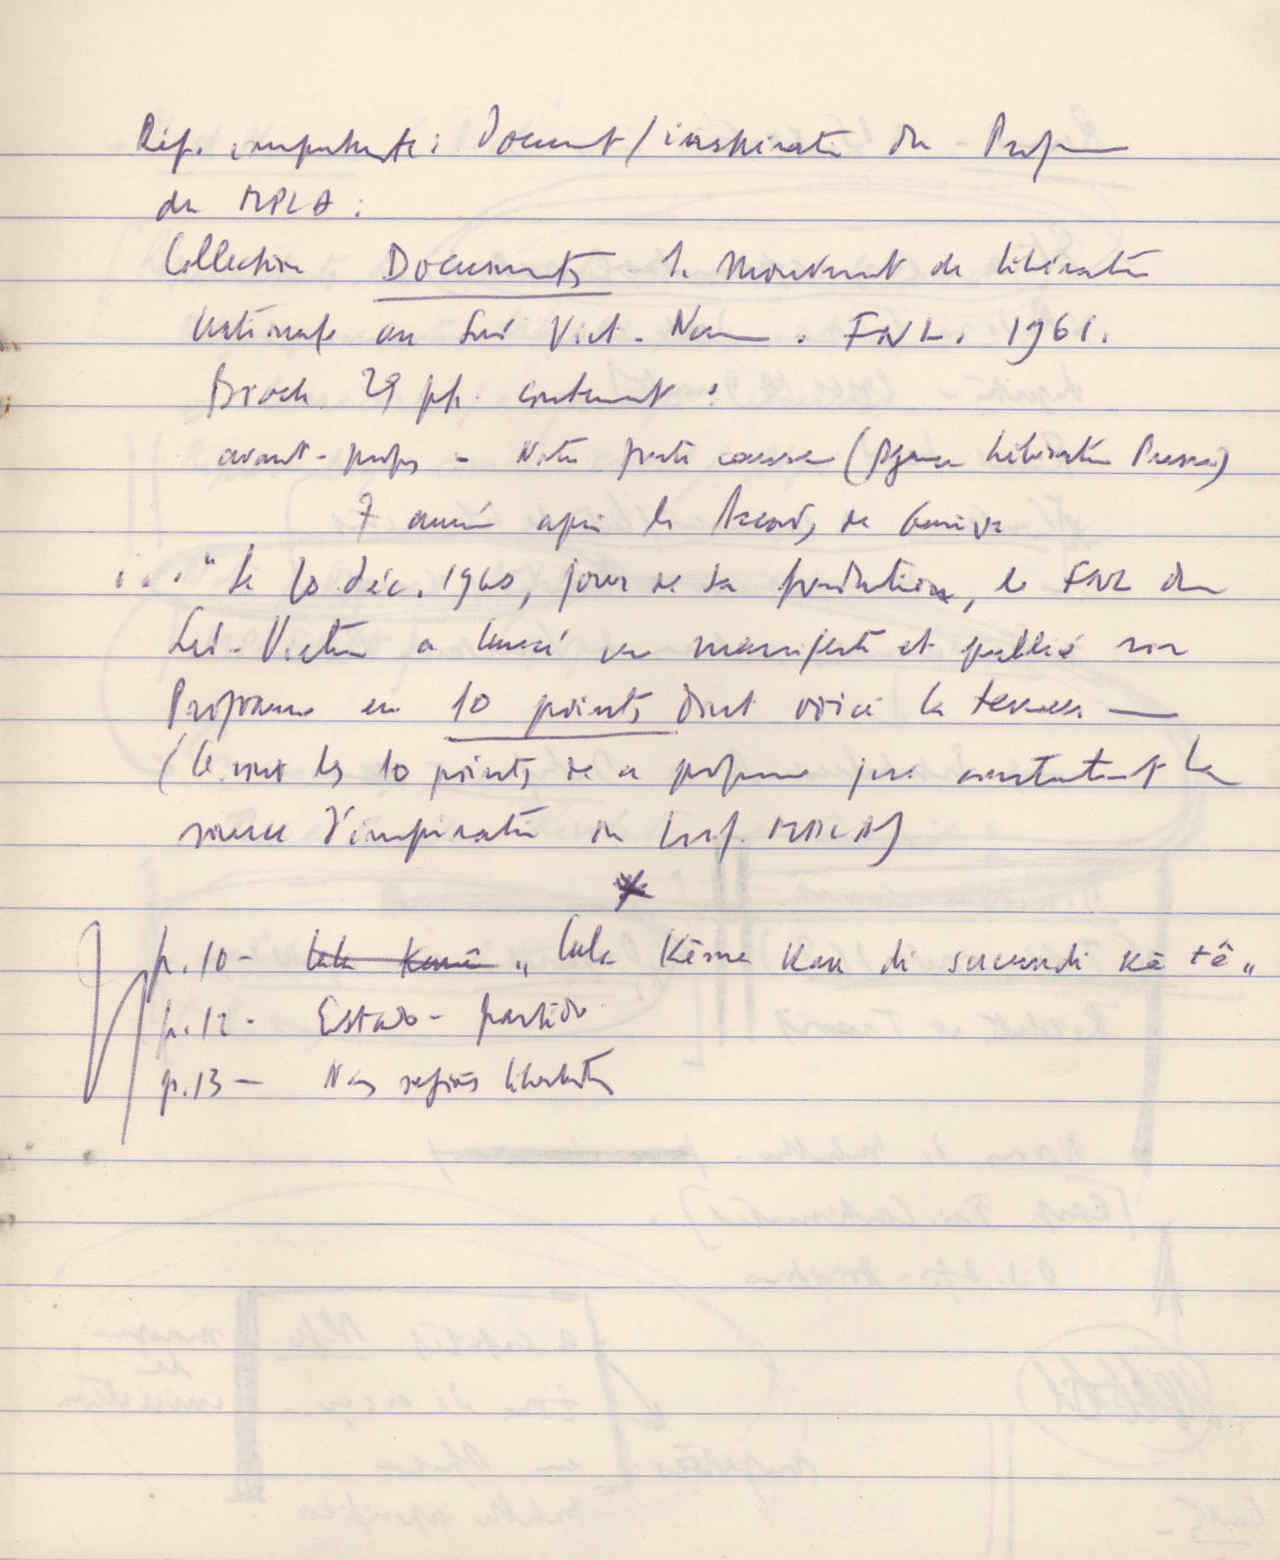 Réf. importante : Document / inspiration du Programme
du MPLA :
Collection Documents le Mouvement de libération
nationale au Sud Viet-Nam. FNL. 1961.
Broch. 29 pp. contenant :
avant-propos - Note (Agence Libération Presse)
7 années après les Accords de Genève
... "Le 20 déc. 1960, jour de sa fondation, le FNL du
Sud-Vietnam a lancé un manifeste et publié son
Programme en 10 points dont voici la teneur —
(Ce sont les 10 points de ce programme que constituent la
source d'inspiration du MPLA)
p. 10 - lala kema " lala Kéma Kau di sucundi ka tê "
p. 12 - Estado - partido
p. 13 - Nas regiões libertadas